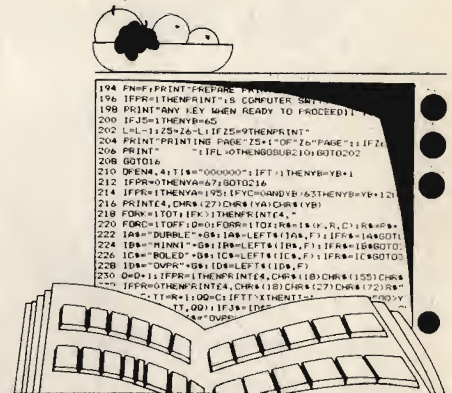 194 FN=F:PRINT"PREPARE
196 IFPR=1THENPRINT":S COMPUTER
198 PRINT"ANY KEY WHEN READY TO PROCEED
200 IFJ5=1THENYB=65
202 L=L-1:Z5=Z6-L:IFZ5=9THENPRINT"
204 PRINT"PRINTING PAGE"Z5+1"OF"Z6"PAGE";:IFZ6
206 PRINT" ":IFL>0THENGOSUB210:GOTO202
208 GOTO16
210 OPEN4,4:T$="000000":IFT>1THENYB=YB+1
212 IFPR=0THENYA=67:GOTO216
214 IFPR=1THENYA=195:IFYC=0ANDYB>63THENYB=YB+12
216 PRINT£4,CHR$(27)CHR$(YA)CHR$(YB)
218 FORK=1TOT:IFK>1THENPRINT£4,"
220 FORC=1TOFF:D=0:FORR=1TOX:R$=I$(K,R,C):R$=R$+
222 IA$="DUBBLE"+G$:IA$=LEFT$(IA$,F):IFR$=IA$GOT
224 IB$="MINNI"+G$:IB$=LEFT$(IB$,F):IFR$=IB$GOTO
226 IC$="BOLED"+G$:IC$=LEFT$(IC$,F):IFR$=IC$GOTO
228 ID$="OVPR"+G$:ID$=LEFT$(ID$,F)
230 D=D+1:IFPR=1THENPRINT£4,CHR$(18)CHR$(155)CHR$
232 IFPR=0THENPRINT£4,CHR$(18)CHR$(27)CHR$(72)R$"
:TT=R+1:QQ=C:IFTT>XTHENTT=
TT,QQ):IFJ$=ID$
$="OVPR"